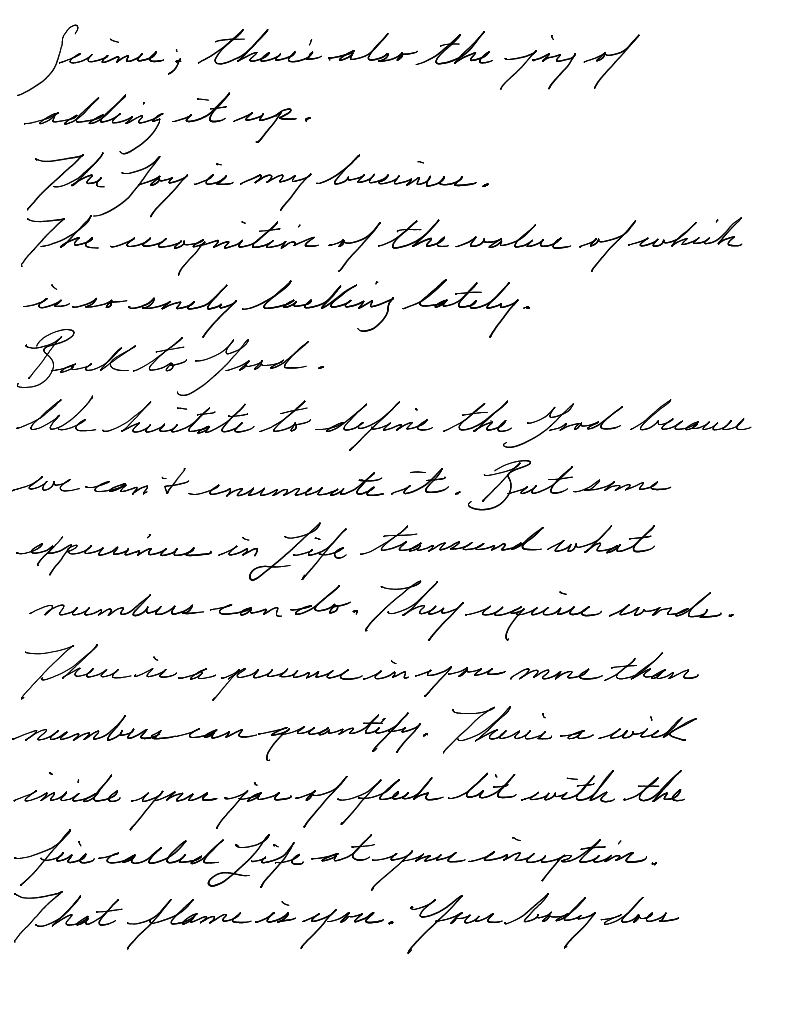 Science; there's also the joy of
adding it up.
The Joy is my business.
The recognition of the value of which
is so sorely lacking lately.
Back to Good.
We hesitate to define the Good because
we can't enumerate it. But some
experiences in Life transcend what
numbers can do. They require words.
There is a presence in you more than
numbers can quantify. There's a wick
inside your jar of flesh lit with the
fire called Life at your inception.
That flame is you. Your body does